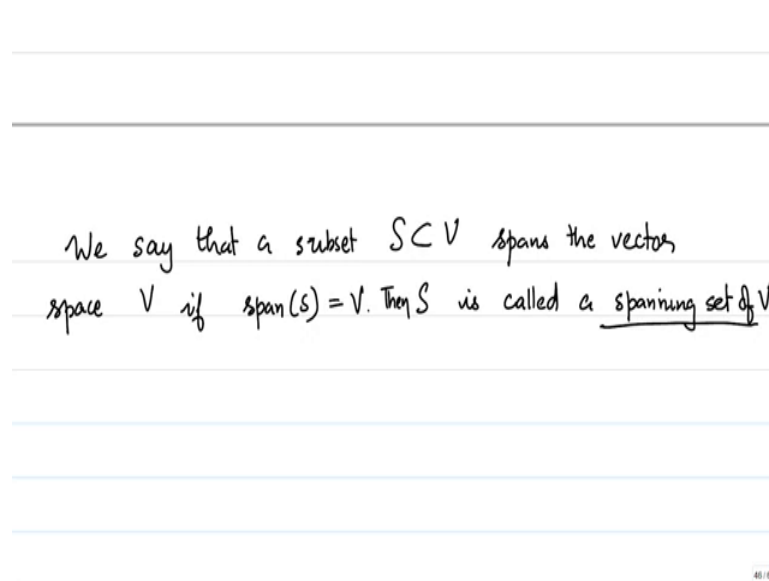 We say that a subset S ⊂ V spans the vector
space V if span(s) = V. Then S is called a spanning set of V